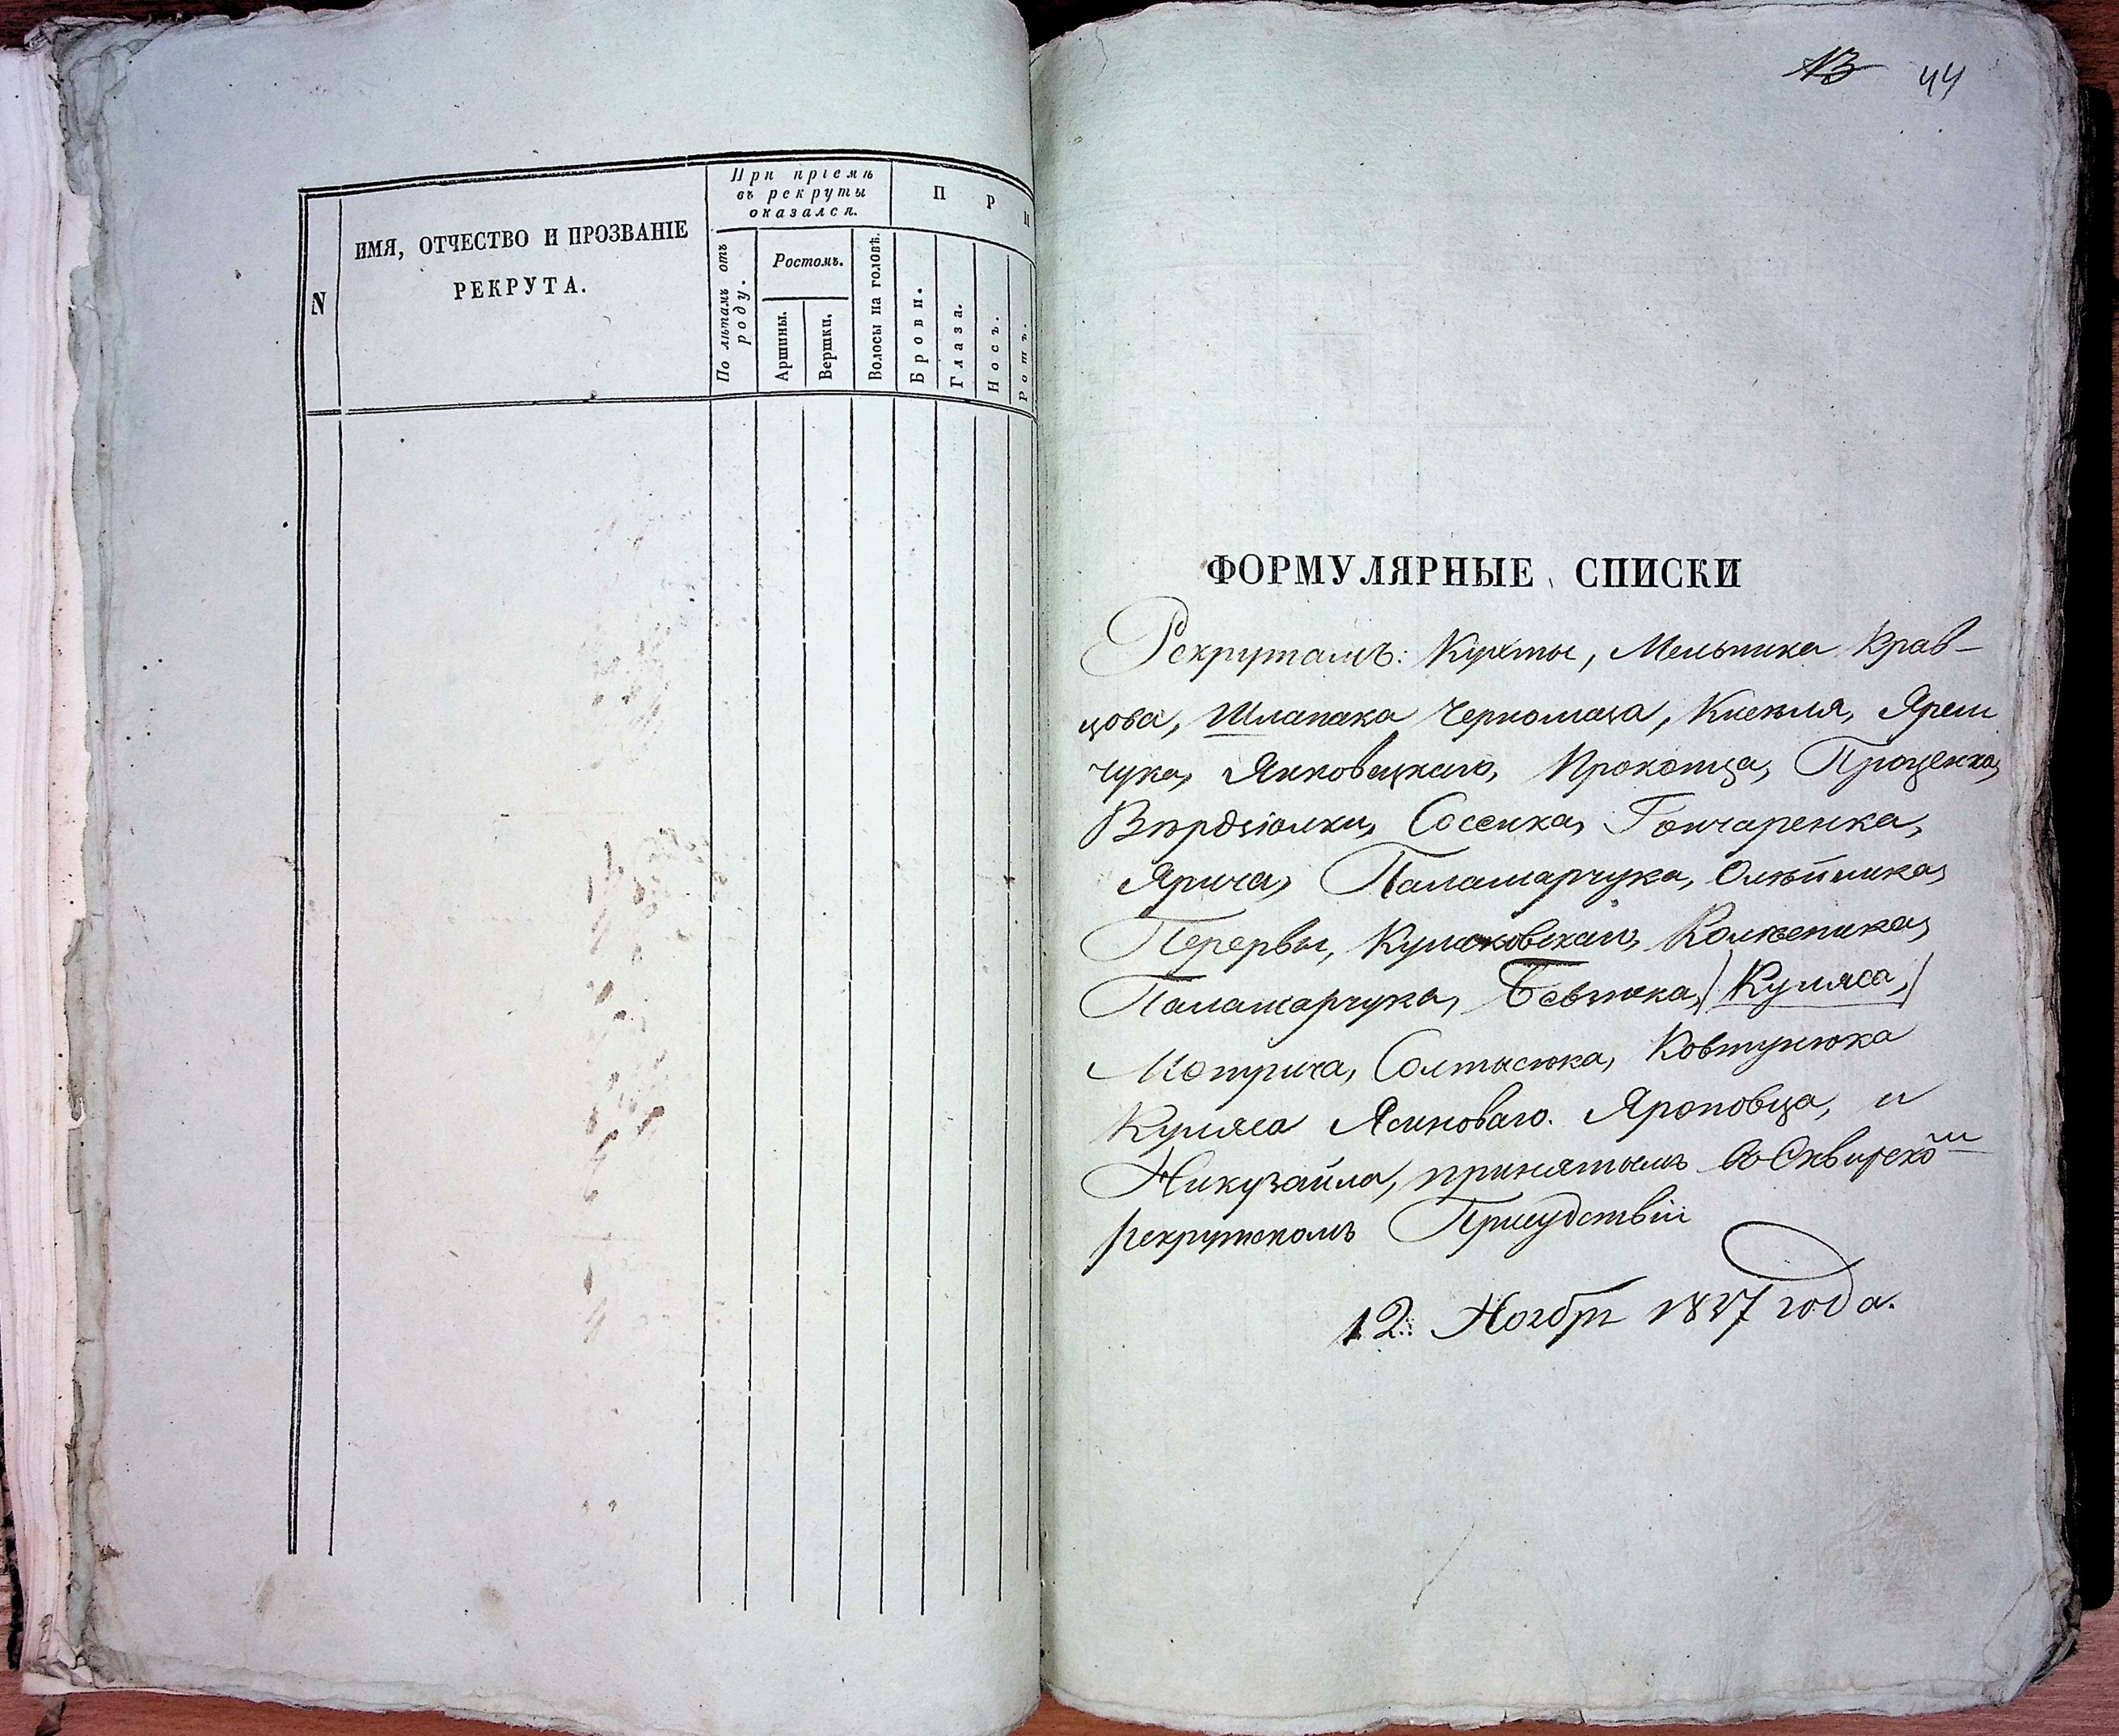 N
ИМЯ, ОТЧЕСТВО И ПРОЗВАНІЕ
РЕКРУТА.
При пріемѣ
въ рекруты
оказался.
По лѣтамъ отъ
роду.
Ростомъ.
Аршины.
Вершки.
Волосы на головѣ.
П Р И
Брови.
Глаза.
Носъ.
Ротъ.
13 44
ФОРМУЛЯРНЫЕ СПИСКИ
Рекрутамъ: Кухты, Мельника Крав-
цова, Шлапака Черномаза, Киселя, Ярем
чука, Янковецкаго, Прокопца, Проценка,
Вѣрдзіолки, Гончаренка,
Ярича, Паламарчука, Олѣйника,
Перервы, Кулаковскаго, Колѣсника,
Паламарчука, (Куляса,)
Мотрича, Солтысюка, Ковтунюка
Куляса Ясиноваго. Яроповца, и
Никузайла, принятымъ въ Сквирскомъ
рекрутскомъ Присудствіи
12. Ноября 1837 года.